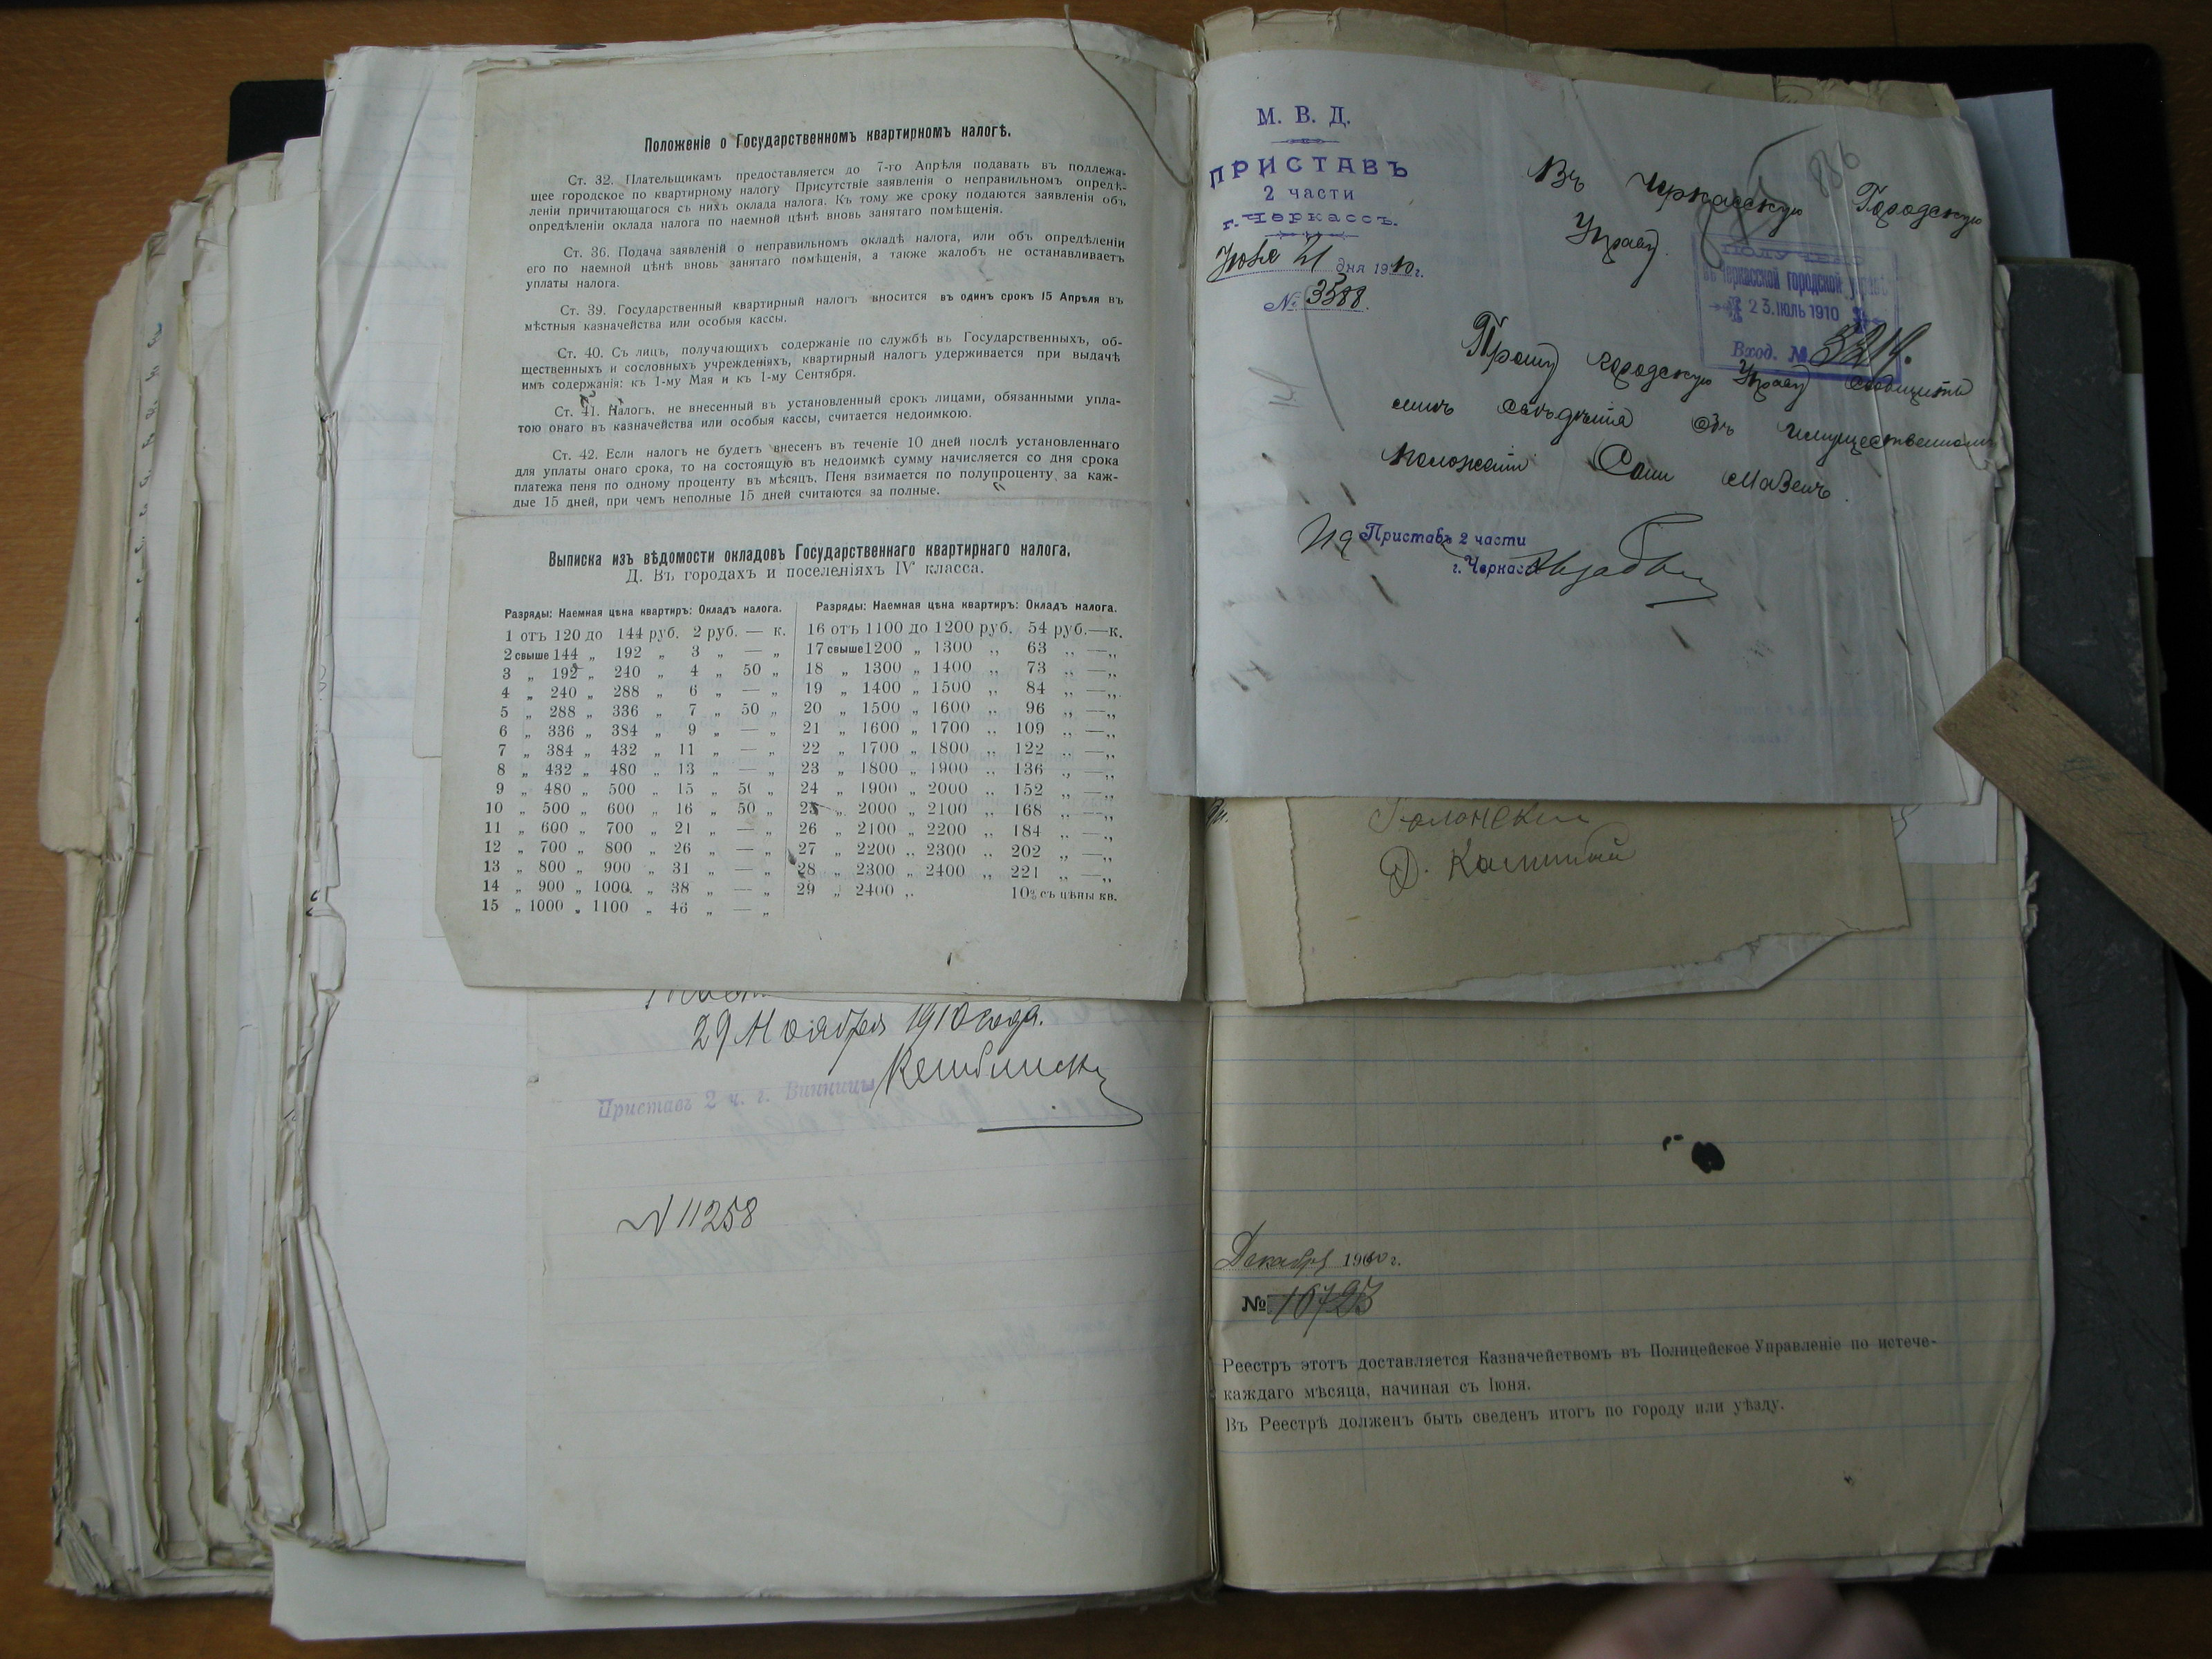 Положеніе о Государственномъ квартирномъ налогѣ.
Ст. 32. Плательщикамъ предоставляется до 7-го Апрѣля подавать въ подлежа-
щее городское по квартирному налогу Присутствіе заявленія о неправильномъ опредѣ-
леніи причитающагося съ нихъ оклада налога. Къ тому же сроку подаются заявленія объ
опредѣленіи оклада налога по наемной цѣнѣ вновь занятаго помѣщенія.
Ст. 36. Подача заявленій о неправильномъ окладѣ налога, или объ опредѣленіи
его по наемной цѣнѣ вновь занятаго помѣщенія, а также жалобъ не останавливаетъ
уплаты налога.
Ст. 39. Государственный квартирный налогъ вносится въ одинъ срокъ 15 Апрѣля въ
мѣстныя казначейства или особыя кассы.
Ст. 40. Съ лицъ, получающихъ содержаніе по службѣ въ Государственныхъ, об-
щественныхъ и сословныхъ учрежденіяхъ, квартирный налогъ удерживается при выдачѣ
имъ содержанія: къ 1-му Мая и къ 1-му Сентября.
Ст. 41. Налогъ, не внесенный въ установленный срокъ лицами, обязанными упла-
тою онаго въ казначейства или особыя кассы, считается недоимкою.
Ст. 42. Если налогъ не будетъ внесенъ въ теченіе 10 дней послѣ установленнаго
для уплаты онаго срока, то на состоящую въ недоимкѣ сумму начисляется со дня срока
платежа пеня по одному проценту въ мѣсяцъ. Пеня взимается по полупроценту за каж-
дые 15 дней, при чемъ неполные 15 дней считаются за полные.
Выписка изъ вѣдомости окладовъ Государственнаго квартирнаго налога,
Д. Въ городахъ и поселеніяхъ IV класса.
Разряды: Наемная цѣна квартиръ: Окладъ налога.
1 отъ 120 до 144 руб. 2 руб. — к.
2 свыше 144 „ 192 „ 3 „ — „
3 „ 192 „ 240 „ 4 „ 50 „
4 „ 240 „ 288 „ 6 „ — „
5 „ 288 „ 336 „ 7 „ 50 „
6 „ 336 „ 384 „ 9 „ — „
7 „ 384 „ 432 „ 11 „ — „
8 „ 432 „ 480 „ 13 „ — „
9 „ 480 „ 500 „ 15 „ 50 „
10 „ 500 „ 600 „ 16 „ 50 „
11 „ 600 „ 700 „ 21 „ — „
12 „ 700 „ 800 „ 26 „ — „
13 „ 800 „ 900 „ 31 „ — „
14 „ 900 „ 1000. „ 38 „ — „
15 „ 1000 „ 1100 „ 46 „ — „
Разряды: Наемная цѣна квартиръ: Окладъ налога.
16 отъ 1100 до 1200 руб. 54 руб.—к.
17 свыше 1200 „ 1300 „ 63 „ —„
18 „ 1300 „ 1400 „ 73 „ —„
19 „ 1400 „ 1500 „ 84 „ —„
20 „ 1500 „ 1600 „ 96 „ —„
21 „ 1600 „ 1700 „ 109 „ —„
22 „ 1700 „ 1800 „ 122 „ —„
23 „ 1800 „ 1900 „ 136 „ —„
24 „ 1900 „ 2000 „ 152 „ —„
25 „ 2000 „ 2100 „ 168 „ —„
26 „ 2100 „ 2200 „ 184 „ —„
27 „ 2200 „ 2300 „ 202 „ —„
28 „ 2300 „ 2400 „ 221 „ —„
29 „ 2400 „ 10% съ цѣны кв.
29 Ноября 1910 года.
Приставъ 2 ч. г. Винницы
N 11258
М. В. Д.
ПРИСТАВЪ
2 части
г. Черкассъ.
Іюля 21 дня 1910 г.
№ 3588.
836
Въ Черкасскую Городскую
Управу.
ПОЛУЧЕНО
въ Черкасской городской управѣ
23 ІЮЛЬ 1910
Вход. № 3214.
Прошу городскую Управу сообщить
мнѣ свѣдѣнія объ имущественномъ
положеніи Сони Мазенъ.
Приставъ 2 части
г. Черкассъ
Декабря 1910 г.
№ 16723
Реестръ этотъ доставляется Казначействомъ въ Полицейское Управленіе по истече-
каждаго мѣсяца, начиная съ Іюня.
Въ Реестрѣ долженъ быть сведенъ итогъ по городу или уѣзду.